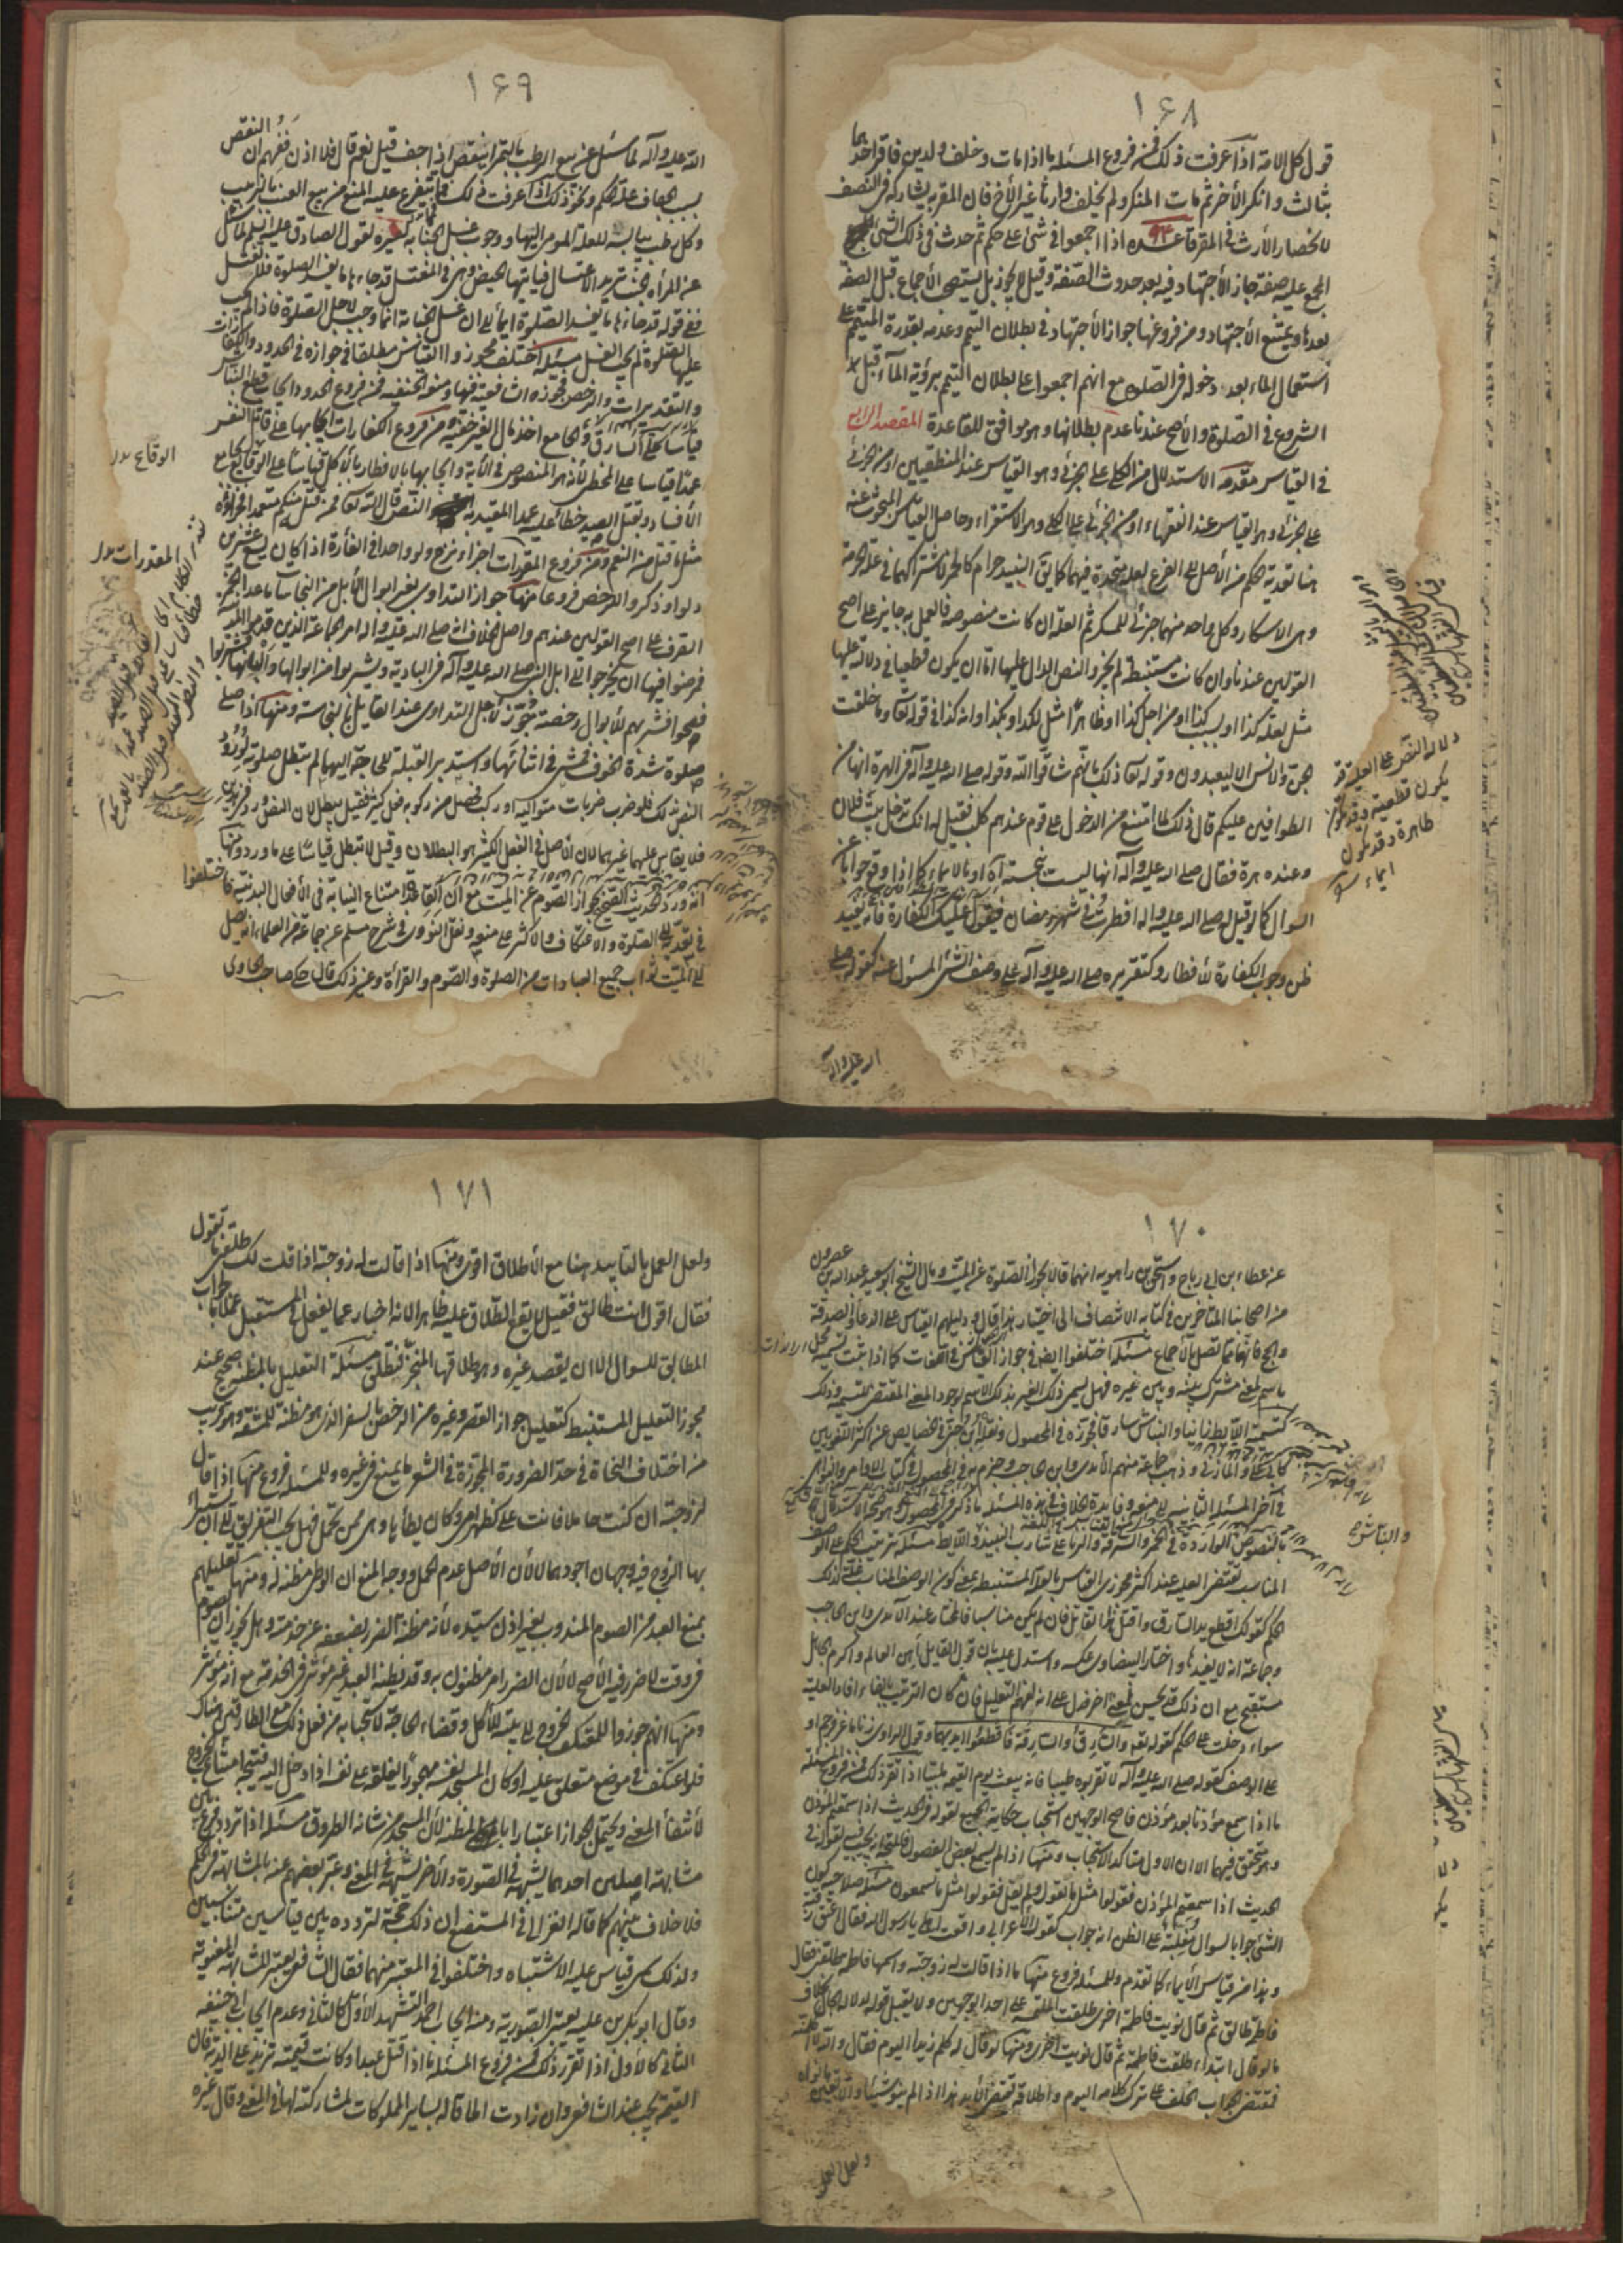 ١٦٨
قول كل الامة اذا عرفت ذلك فمن فروع المسئلة ما اذا مات وخلف ولدين فاقر احدهما
بثالث وانكر الآخر ثم مات المنكر ولم يخلف وارثا غير الأخ فان المقر به يشاركه في النصف
لانحصار الأرث في المقر قاعدة اذا اجمعوا في شئ على حكم ثم حدث في ذلك الشئ
المجمع عليه صفة جاز الأجتهاد فيه بعد حدوث الصفة وقيل لا يجوز بل يستصحب الأجماع قبل الصفة
بعدها ويمتنع الأجتهاد ومن فروعها جواز الأجتهاد في بطلان التيمم وعدمه بقدرة المتيمم على
استعمال الماء بعد دخوله في الصلوة مع انهم اجمعوا على بطلان التيمم برؤية المآء قبل
الشروع في الصلوة والأصح عندنا عدم بطلانها وهو موافق للقاعدة المقصد الرابع
في القياس مقدمة الاستدلال من الكلي على الجزئي وهو القياس عند المنطقيين او من الجزئي
على الجزئي وهو القياس عند الفقهاء او من الجزئي على الكلي وهو الاستقراء وحاصل القياس المبحوث عنه
هنا تعدية الحكم من الأصل الى الفرع لعلة متحدة فيهما كما يق النبيذ حرام كالخمر لاشتراكهما في علة الحرمة
وهى الاسكار وكل واحد منهما جزئي للمسكر ثم العلة ان كانت منصوصة فالعمل به جايز على اصح
القولين عندنا وان كانت مستنبطة لم يجز والنص الدال عليها اما ان يكون قطعيا في دلالته عليها
مثل بعلة كذا او بسبب كذا او من اجل كذا او ظاهرا مثل لكذا او بكذا وانه كذا في قوله تعا وما خلقت
الجن والانس الا ليعبدون وقوله تعا ذلك بانهم شاقوا الله وقوله صلى الله عليه وآله في الهرة انها من
الطوافين عليكم قال ذلك لما امتنع من الدخول على قوم عندهم كلب فقيل له انك تدخل بيت فلان
وعنده هرة فقال صلى الله عليه وآله انها ليست بنجسة او بالايماء كما اذا وقع جوابا عن
السوال كما لو قيل له صلى الله عليه واله افطرت في شهر رمضان فيقول عليك الكفارة فانه يفيد
ظن وجوب الكفارة للأفطار وكتقريره صلى الله عليه وآله على وصف الشئ المسئول عنه كقوله صلى
دلالة النص على العلية قد
يكون قطعية وقد يكون
ظاهرة وقد يكون
ايماء
الله عليه وآله
١٦٩
الله عليه وآله لما سئل عن بيع الرطب بالتمر اينقص اذا جف قيل نعم قال فلا اذن ففهم ان النقص
بسبب الجفاف علة الحكم ونحو ذلك اذا عرفت ذلك فما يتفرع عليه المنع من بيع العنب بالزبيب
وكل رطب بيابسه للعلة المومى اليها ووجوب غسل الجنابة لغيره لقول الصادق عليه السلم لما سئل
عن المرأة الجنب تريد الاغتسال فيأتيها الحيض وهي في المغتسل قد جاءها ما يفسد الصلوة فلا تغتسل
ففي قوله قد جاءها ما يفسد الصلوة ايماء الى ان غسل الجنابة انما وجب لاجل الصلوة فاذا لم تجب
عليها الصلوة لم يجب الغسل مسئلة اختلف مجوزوا القياس مطلقا في جوازه في الحدود والكفارات
والتقديرات والرخص فجوزه الشافعية فيها ومنعه الحنفية فمن فروع الحدود ايجاب قطع النباش
قياسا على السارق والجامع اخذ مال الغير خفية ومن فروع الكفارات ايجابها على قاتل النفس
عمدا قياسا على المخطئ لأنه هو المنصوص في الآية وايجابها بالافطار بالأكل قياسا على الوقاع بجامع
الأفساد وبقتل الصيد خطأ على عمد المقيد به النص قال الله تعا فمن قتله منكم متعمدا فجزاؤه
مثل ما قتل من النعم ومن فروع المقدرات اجزاء نزح دلو واحد في الفأرة اذا كان يسع عشرين
دلوا وذكروا للرخص فروعا منها جواز التداوي بغير ابوال الأبل من النجاسات ما عدا الخمر
الصرف على اصح القولين عندهم واصل الخلاف انه صلى الله عليه واله امر الجماعة الذين قدموا المدينة
فمرضوا فيها ان يخرجوا الى ابل النبي صلى الله عليه وآله في البادية ويشربوا من ابوالها والبانها فشربوا
فصحوا فشربهم للأبوال رخصة جوزت لأجل التداوي عند القايل بالنجاسة ومنها اذا صلى
صلوة شدة الخوف فمشى في اثنائها واستدبر القبلة للحاجة اليها لم تبطل صلوته لورود
النص بذلك فلو ضرب ضربات متوالية او ركب فحصل من ركوبه فعل كثير فقيل يبطل لان النص ورد في هذين
فلا يقاس عليهما غيرهما لان الأصل في الفعل الكثير هو البطلان وقيل لا تبطل قياسا على ما ورد ومنها
انه ورد الحديث الصحيح بجواز الصوم عن الميت مع ان القاعدة امتناع النيابة في الأفعال البدنية فاختلفوا
في تعديته الى الصلوة والاعتكاف والاكثر على منعه ونقل النووي في شرح مسلم عن جماعة من العلماء انه يصل
الى الميت ثواب جميع العبادات من الصلوة والصوم والقرأة وغير ذلك قال حكى صاحب الحاوي
الوقاع
المقدرات
١٧٠
عن عطاء بن ابي رباح واسحق بن راهويه انهما قالا يجوز الصلوة عن الميت ومال الشيخ ابو سعيد عبد الله بن عصرون
من اصحابنا المتأخرين في كتابه الانتصاف الى اختيار هذا قال ودليلهم القياس على الدعاء والصدقة
والحج فانها تصل بالأجماع مسئلة اختلفوا ايضا في جواز القياس في اللغات كما اذا ثبت تسمية محل
باسم لمعنى مشترك بينه وبين غيره فهل يسمى ذلك الغير بذلك الاسم لوجود المعنى المقتضي للتسمية وذلك
كتسمية اللايط زانيا والنباش سارقا فجوزه في المحصول ونقله ابن جني في الخصايص عن اكثر اللغويين
كالفارسي والمازني وذهب جماعة منهم الأمدي وابن الحاجب وجزم به في المحصول في كتاب الاوامر والنواهي
في آخر المسئلة الثانية الى منعه وفايدة الخلاف في هذه المسئلة ما ذكره في المحصول وهو صحة الاستدلال
بالنصوص الواردة في الخمر والسرقة والزنا على شارب النبيذ واللايط مسئلة ترتيب الحكم على الوصف
المناسب يقتضي العلية عند اكثر مجوزي القياس بالعلة المستنبطة بمعنى كون الوصف المناسب علة لذلك
الحكم كقولك اقطع يد السارق واقتل القاتل فان لم يكن مناسبا فالمختار عند الآمدي وابن الحاجب
وجماعة انه لا يفيدها واختار البيضاوي عكسه واستدل عليه بان قول القايل اهن العالم واكرم الجاهل
مستقبح مع ان ذلك قد يحسن لمعنى اخر فدل على انه لفهم التعليل فان كان الترتيب بالفاء افاد العلية
سواء دخلت على الحكم كقوله تعا والسارق والسارقة فاقطعوا ايديهما وقول الراوي زنا ماعز فرجم او
على الوصف كقوله صلى الله عليه وآله لا تقربوه طيبا فانه يبعث يوم القيمة ملبيا اذا تقرر ذلك فمن فروع المسئلة
ما اذا سمع مؤذنا بعد مؤذن فاصح الوجهين استحباب حكاية الجميع لقوله في الحديث اذا سمعتم المؤذن
وهو متحقق فيهما الا ان الاول متأكد الاستحباب ومنها اذا لم يسمع بعض الفصول فالمتجه انه يجيب فيه لقوله في
الحديث اذا سمعتم المؤذن فقولوا مثل ما يقول ولم يقل فقولوا مثل ما تسمعون مسئلة صلاحية كون
الشئ جوابا لسوال يغلب على الظن انه جواب كقول الأعرابي واقعت اهلي يا رسول الله فقال اعتق رقبة
وهذا من قياس الأيماء كما تقدم وللمسئلة فروع منها ما اذا قالت له زوجته واسمها فاطمة طلقني فقال
فاطمة طالق ثم قال نويت فاطمة اخرى طلقت المتكلمة على احد الوجهين ولا يقبل قوله لدلالة الحال بخلاف
ما لو قال ابتداء طلقت فاطمة ثم قال نويت اخرى ومنها لو قال له كلم زيدا اليوم فقال والله لا كلمته
فتقتضي الجواب الحلف على ترك كلامه اليوم واطلاقه تقتضي التأبيد هذا اذا لم ينو شيئا والا تعين ما نواه
والنباش
ولعل العمل
١٧١
ولعل العمل بالتأبيد هنا مع الأطلاق اقوى ومنها اذا قالت له زوجته اذا قلت لك طلقني ما تقول
فقال اقول انت طالق فقيل لا يقع الطلاق عليه ظاهرا لانه اخبار عما يفعل في المستقبل عملا بالجواب
المطابق للسوال الا ان يقصد غيره وهو طلاقها المنجز فتطلق مسئلة التعليل بالمظنة صحيح عند
مجوزي التعليل المستنبط كتعليل جواز القصر وغيره من الرخص بالسفر الذي هو مظنة للمشقة وهو قريب
من اختلاف النحاة في حد الضرورة المجوزة في الشعر لما يمنع في غيره وللمسئلة فروع منها اذا قال
لزوجته ان كنت حاملا فانت على كظهر امي وكان يطأها وهي ممن تحمل فهل يجب التفريق الى ان يستبرأ
بها الزوج فيه وجهان اجودهما لا لأن الأصل عدم الحمل ووجه المنع ان الوطي مظنة له ومنها تعليلهم
بمنع العبد من الصوم المندوب بغير اذن سيده لأنه مظنة الضرر بضعفه عن خدمته وهل يجوز ان يصوم
في وقت لا ضرر فيه الأصح لا لأن الضرر امر مظنون به وقد يظنه العبد غير مؤثر في الخدمة مع انه مؤثر
ومنها انهم جوزوا للمعتكف الخروج الى بيته للأكل وقضاء الحاجة لاستحيائه من فعل ذلك مع الطارقين هناك
فلو اعتكف في موضع مغلق عليه او كان المسجد نفسه مهجورا يغلقه على نفسه اذا دخل اليه فيتجه امتناع الخروج
لأنتفاء المعنى ويحتمل الجواز اعتبارا بالمظنة لأن المسجد من شانه الطروق مسئلة اذا تردد فرع بين
مشابهة اصلين احدهما يشبهه في الصورة والأخر يشبهه في المعنى وعبر بعضهم عنه بالمشابهة في الحكم
فلا خلاف بينهم كما قاله الغزالي في المستصفى ان ذلك حجة لتردده بين قياسين متناسبين
ولذلك سمي قياس علية الاشتباه واختلفوا في المعتبر منهما فقال الشافعي يعتبر المشابهة المعنوية
وقال ابو بكر بن علية يعتبر الصورية ومنه ايجاب احمد التشهد الأول كالثاني وعدم ايجاب ابي حنيفة
الثاني كالأول اذا تقرر ذلك فمن فروع المسئلة ما اذا قتل عبدا وكانت قيمته تزيد على الدية فان
القيمة تجب عند الشافعي وان زادت الحاقا له بساير المملوكات لمشاركته لها في المعنى وقال غيره